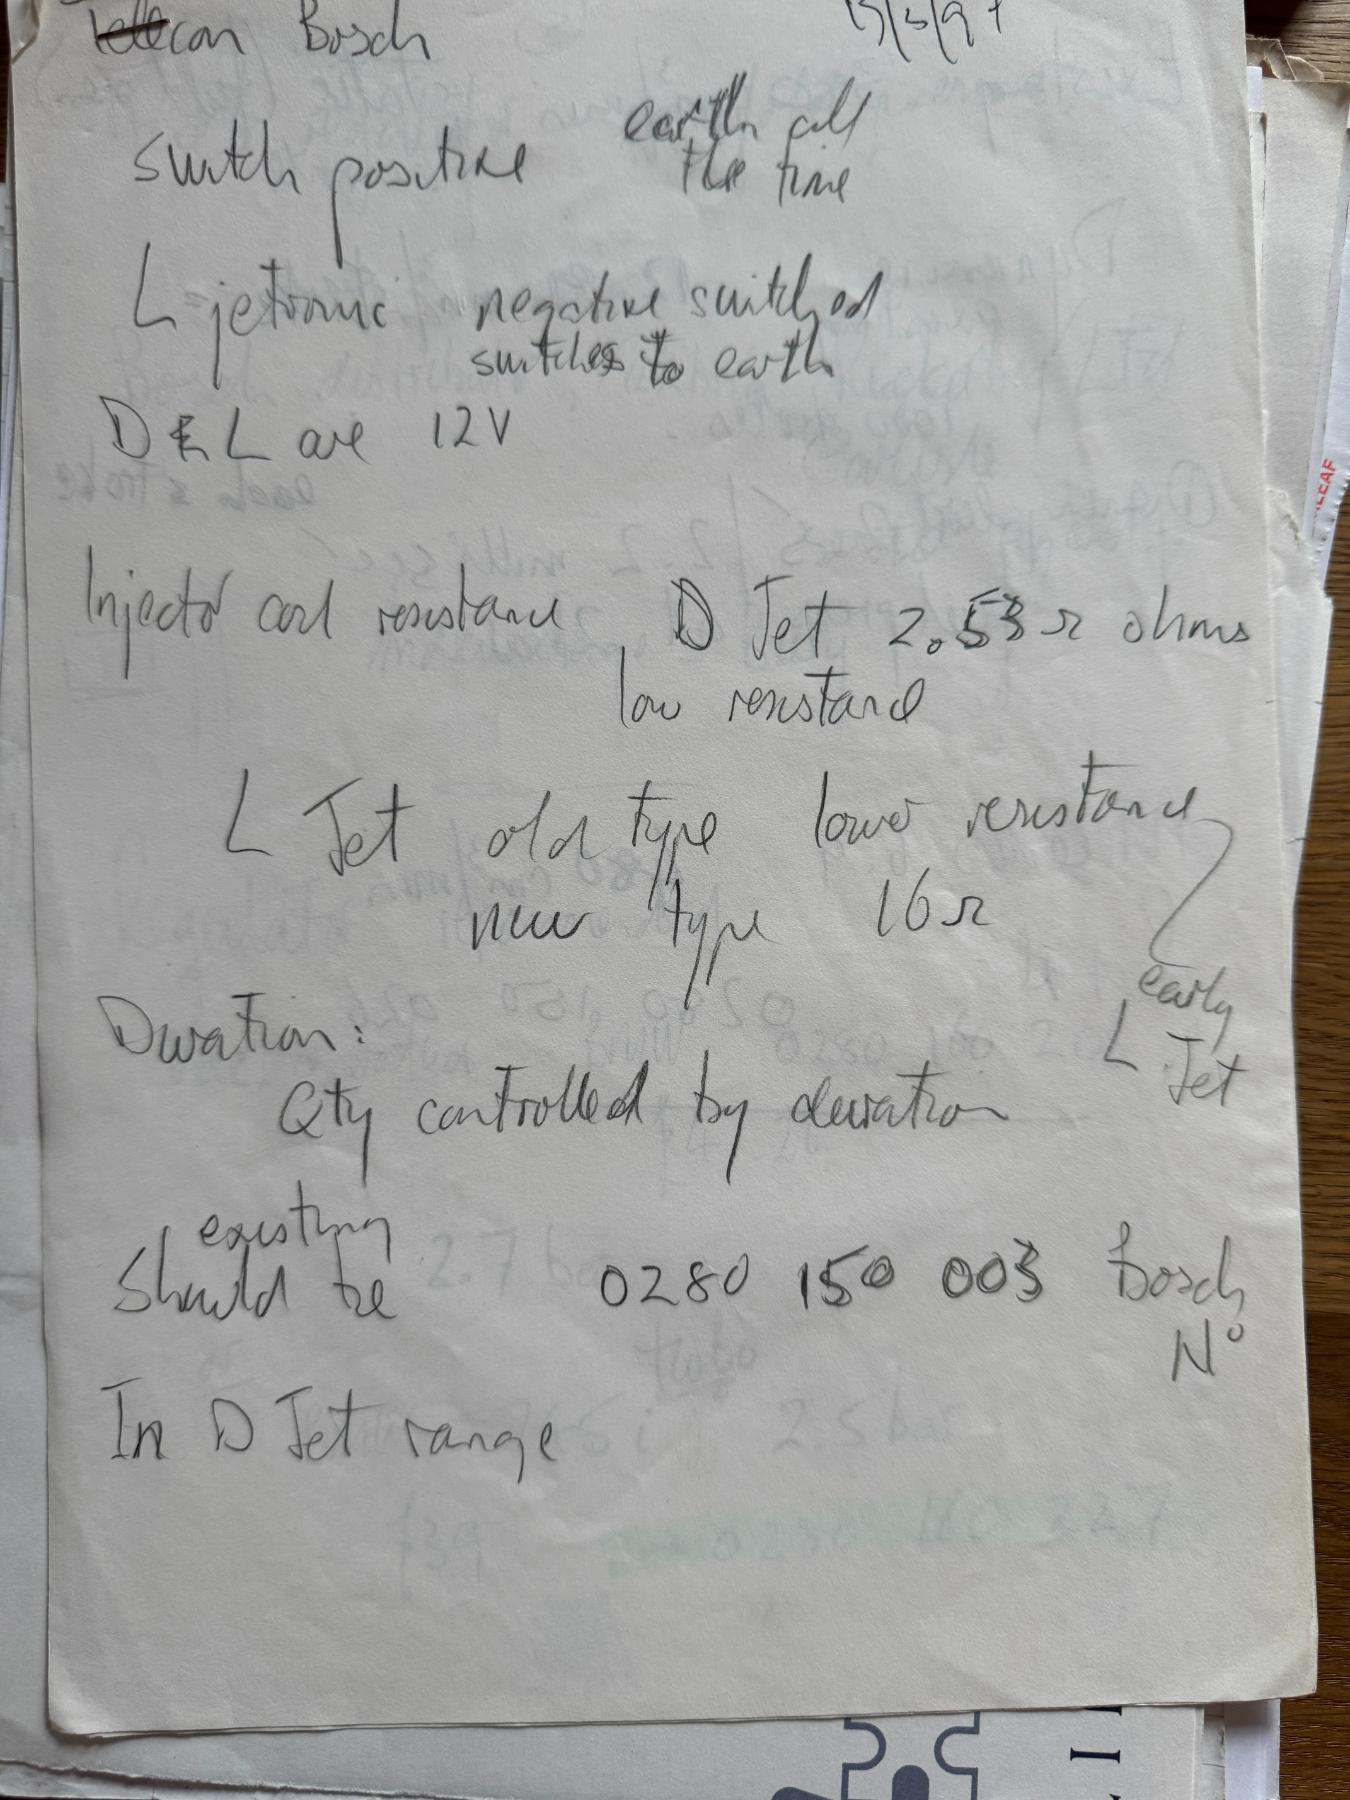 Telecon Bosch
switch positive earth all
the time
L jetronic negative switched
switches to earth
D & L are 12V
Injector coil resistance D Jet 2.53 Ω ohms
low resistance
L Jet old type lower resistance
new type 16 Ω
early
L Jet
Duration:
Qty controlled by duration
existing
Should be 0280 150 003 Bosch
Nº
In D Jet range
LEAF